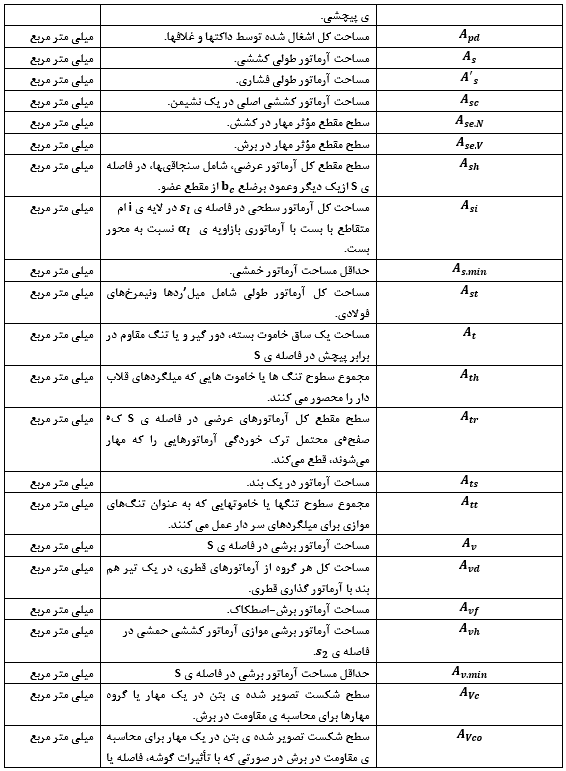 ی پیچشی.
A_pd مساحت کل اشغال شده توسط داکتها و غلافها. میلی متر مربع
A_s مساحت آرماتور طولی کششی. میلی متر مربع
A′_s مساحت آرماتور طولی فشاری. میلی متر مربع
A_sc مساحت آرماتور کششی اصلی در یک نشیمن. میلی متر مربع
A_se.N سطح مقطع مؤثر مهار در کشش. میلی متر مربع
A_se.V سطح مقطع مؤثر مهار در برش. میلی متر مربع
A_sh سطح مقطع کل آرماتور عرضی، شامل سنجاقی‌ها، در فاصله میلی متر مربع
ی S ازیک دیگر وعمود برضلع b_c از مقطع عضو.
A_si مساحت کل آرماتور سطحی در فاصله ی s_l در لایه ی i ام میلی متر مربع
متقاطع با بست با آرماتوری بازاویه ی α_l نسبت به محور
بست.
A_s.min حداقل مساحت آرماتور خمشی. میلی متر مربع
A_st مساحت کل آرماتور طولی شامل میل‘ردها ونیمرخ‌های میلی متر مربع
فولادی.
A_t مساحت یک ساق خاموت بسته، دور گیر و یا تنگ مقاوم در میلی متر مربع
برابر پیچش در فاصله ی S
A_th مجموع سطوح تنگ ها یا خاموت هایی که میلگردهای قلاب میلی متر مربع
دار را محصور می کنند.
A_tr سطح مقطع کل آرماتورهای عرضی در فاصله ی S که میلی متر مربع
صفحه‌ی محتمل ترک خوردگی آرماتورهایی را که مهار
می‌شوند، قطع می‌کند.
A_ts مساحت آرماتور در یک بند. میلی متر مربع
A_tt مجموع سطوح تنگها یا خاموتهایی که به عنوان تنگ‌های میلی متر مربع
موازی برای میلگردهای سر دار عمل می کنند.
A_v مساحت آرماتور برشی در فاصله ی S میلی متر مربع
A_vd مساحت کل هر گروه از آرماتورهای قطری، در یک تیر هم میلی متر مربع
بند با آرماتور گذاری قطری.
A_vf مساحت آرماتور برش-اصطکاک. میلی متر مربع
A_vh مساحت آرماتور برشی موازی آرماتور کششی خمشی در میلی متر مربع
فاصله ی s_2.
A_v.min حداقل مساحت آرماتور برشی در فاصله ی S میلی متر مربع
A_Vc سطح شکست تصویر شده ی بتن در یک مهار یا گروه میلی متر مربع
مهارها برای محاسبه ی مقاومت در برش.
A_Vco سطح شکست تصویر شده ی بتن در یک مهار برای محاسبه میلی متر مربع
ی مقاومت در برش در صورتی که با تأثیرات گوشه، فاصله یا